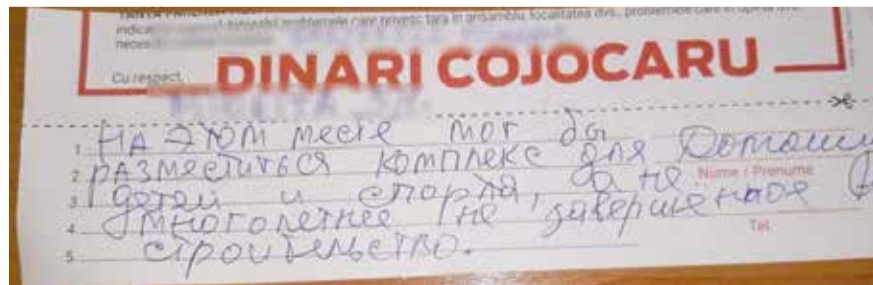 indica problemele care privesc țara în ansamblu, localitatea dvs., problemele care
neces
Cu respect,
DINARI COJOCARU
1 НА ЭТОМ месте мог бы
2 РАЗМЕСТИТЬСЯ КОМПЛЕКС для
Nume / Prenume
3 детей и спорта, а не
4 многолетнее не завершенное
Tel.
5 строительство.